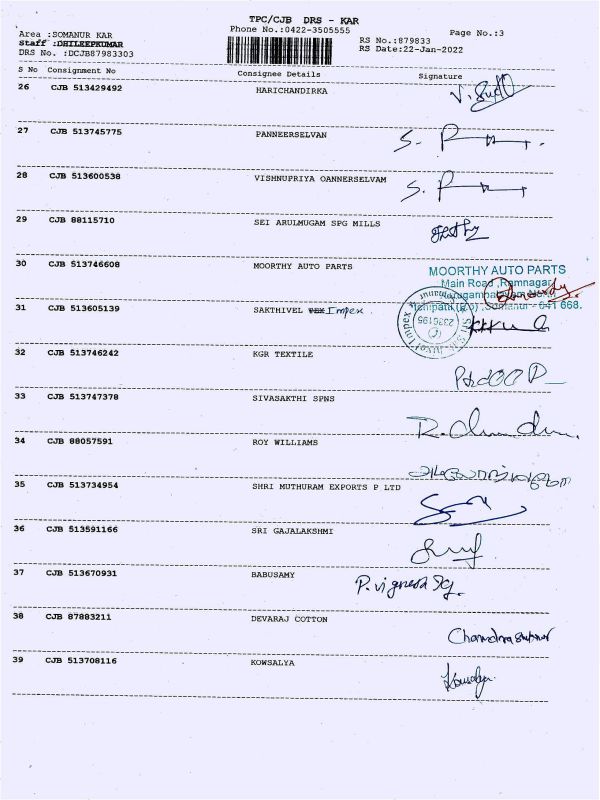 TPC/CJB DRS - KAR
Phone No.:0422-3505555
Page No.:3
Area :SOMANUR KAR
Staff :DHILEEPKUMAR
DRS No. :DCJB87983303
RS No.:879833
RS Date:22-Jan-2022
S No Consignment No Consignee Details Signature
26 CJB 513429492 HARICHANDIRKA
27 CJB 513745775 PANNEERSELVAN
28 CJB 513600538 VISHNUPRIYA OANNERSELVAM
29 CJB 88115710 SEI ARULMUGAM SPG MILLS
30 CJB 513746608 MOORTHY AUTO PARTS
MOORTHY AUTO PARTS
Main Road, Ramnagar,
Somanur - 641 668.
31 CJB 513605139 SAKTHIVEL Impex
32 CJB 513746242 KGR TEXTILE
33 CJB 513747378 SIVASAKTHI SPNS
34 CJB 88057591 ROY WILLIAMS
35 CJB 513734954 SHRI MUTHURAM EXPORTS P LTD
36 CJB 513591166 SRI GAJALAKSHMI
37 CJB 513670931 BABUSAMY
38 CJB 87883211 DEVARAJ COTTON
39 CJB 513708116 KOWSALYA
Kowsalya